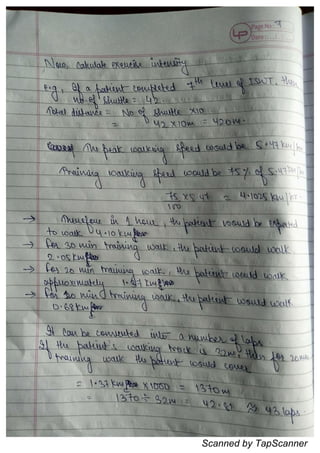 Page No. 9
Date:
Now, calculate exercise intensity
E.g, If a patient completed 7th level of ISWT, then
no. of shuttle = 42
Total distance = No of shuttle x10
= 42 x10m = 420m.
The peak walking speed would be 5.47 km/hr
Training walking speed would be 75% of 5.47 km/hr
75 x 5.47 = 4.1025 km/hr
100
→ Therefore in 1 hour, the patient would be
to walk 4.10 km
→ For 30 min training walk, the patient would walk
2.05 km
→ For 20 min training walk, the patient would walk
approximately 1.37 km
→ For 10 min training walk, the patient would walk
0.68 km
It can be converted into a number of laps
If the patient's walking track is 32m, then for 20 min
training walk the patient would cover
= 1.37 km x 1000 = 1370m
= 1370 ÷ 32m = 42.81 ≈ 43 laps.
Scanned by TapScanner